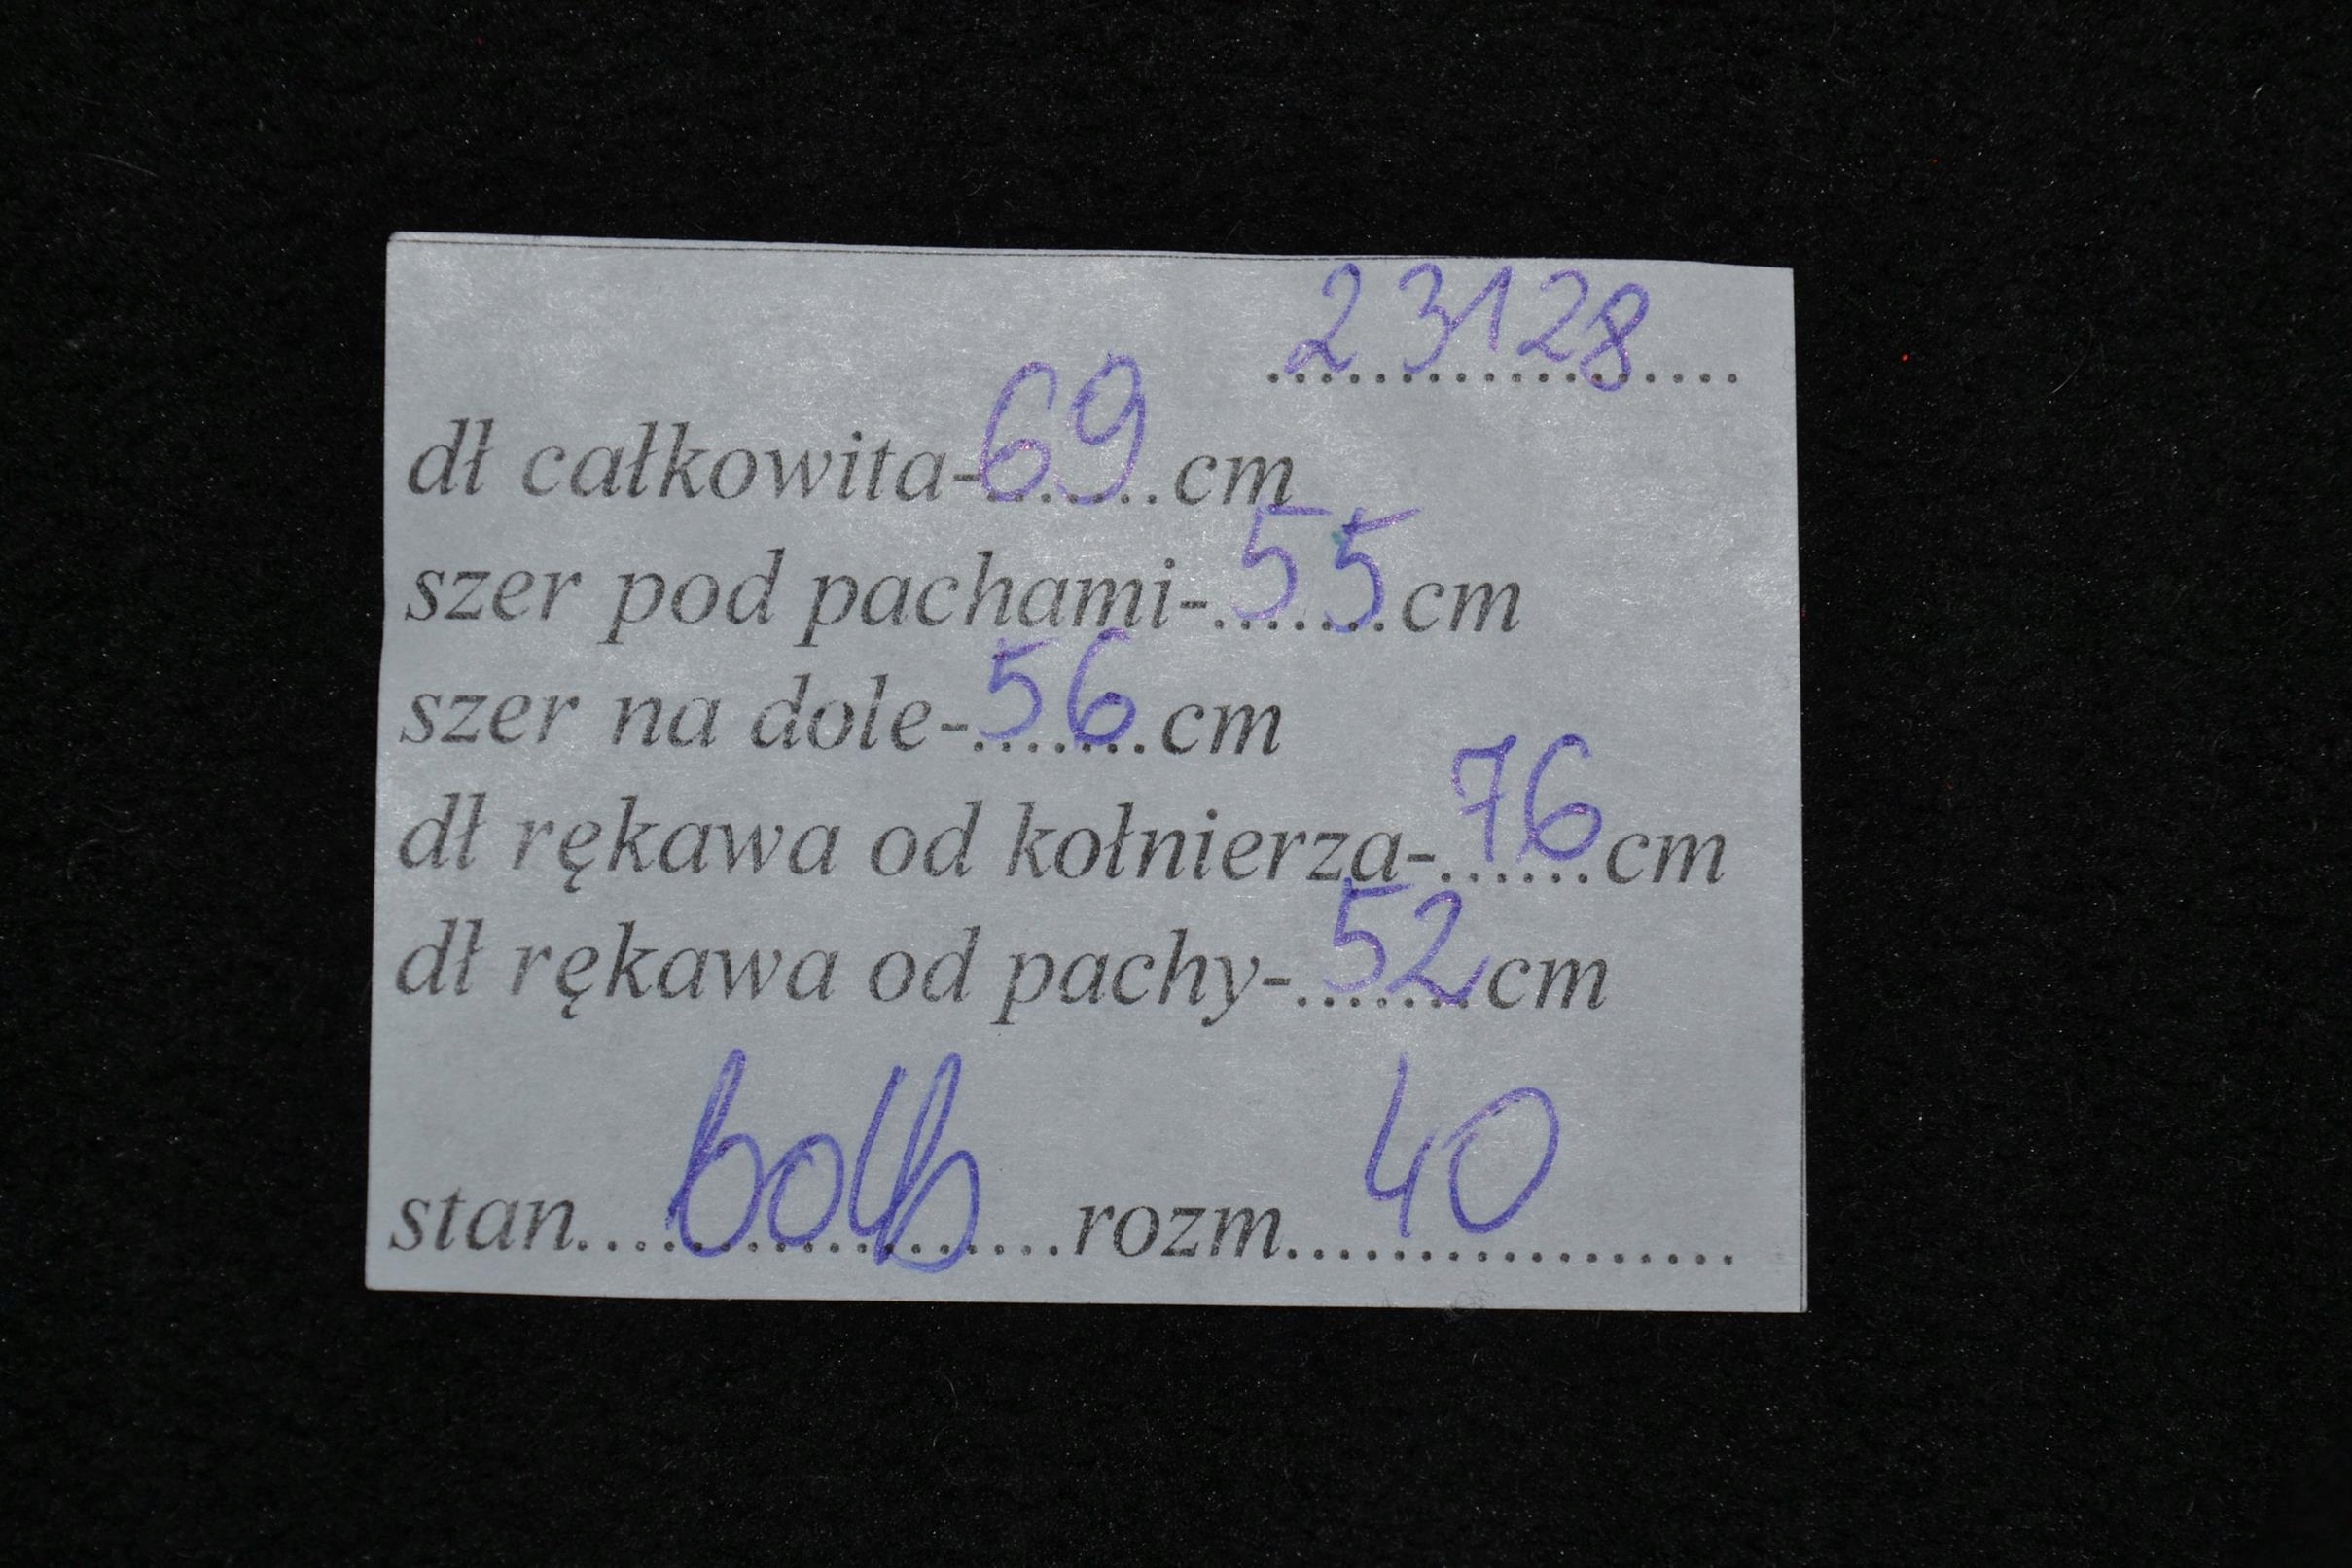 23128
dł całkowita-69cm
szer pod pachami-55cm
szer na dole-56cm
dł rękawa od kołnierza-76cm
dł rękawa od pachy-52cm
stan.....................rozm 40